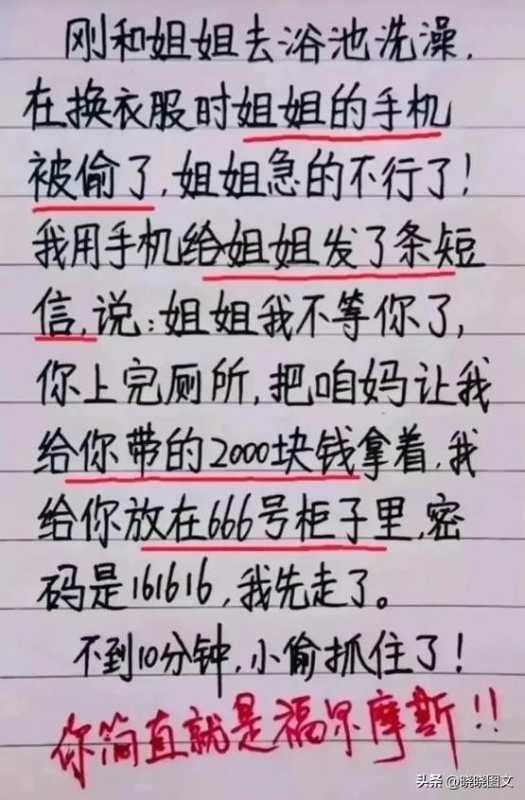 刚和姐姐去浴池洗澡,
在换衣服时姐姐的手机
被偷了,姐姐急的不行了!
我用手机给姐姐发了条短
信,说:姐姐我不等你了,
你上完厕所,把咱妈让我
给你带的2000块钱拿着,我
给你放在666号柜子里,密
码是161616,我先走了。
不到10分钟,小偷抓住了!
你简直就是福尔摩斯!!
头条 @晓晓图文